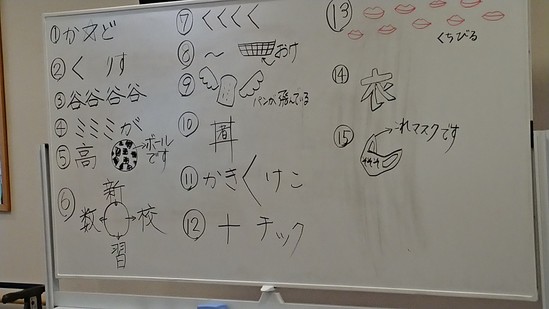 ①か ど
②く りす
③谷谷谷谷
④ミミミが
⑤高 ボール
です
⑥新
数 校
習
⑦くくくく
⑧〜 おけ
⑨パンが飛んでいる
⑩
⑪かきくけこ
⑫十チック
⑬
くちびる
⑭衣
⑮これマスクです